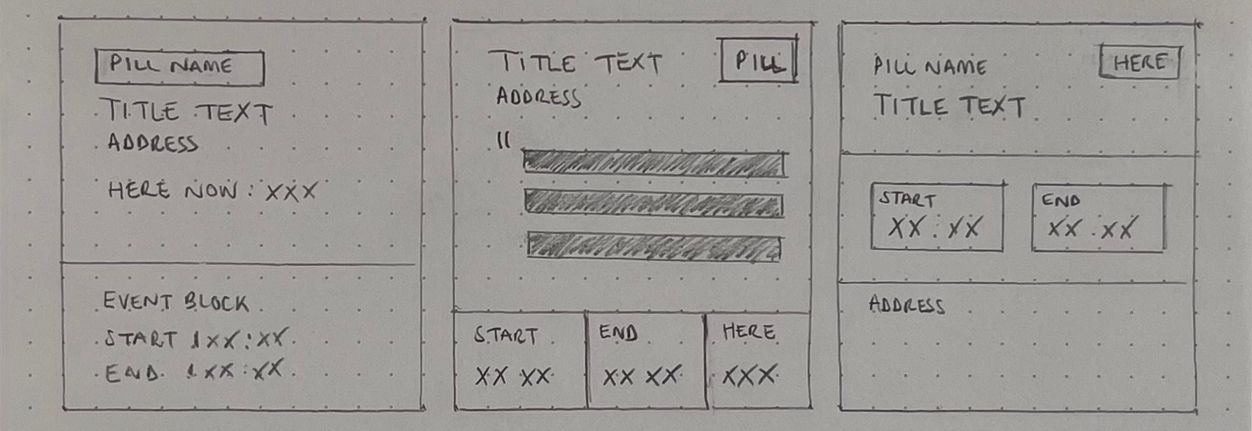 PILL NAME
TITLE TEXT
ADDRESS
HERE NOW: XXX
EVENT BLOCK
START XX:XX
END XX:XX
TITLE TEXT PILL
ADDRESS
"
START END HERE
XX XX XX XX XXX
PILL NAME HERE
TITLE TEXT
START END
XX:XX XX:XX
ADDRESS